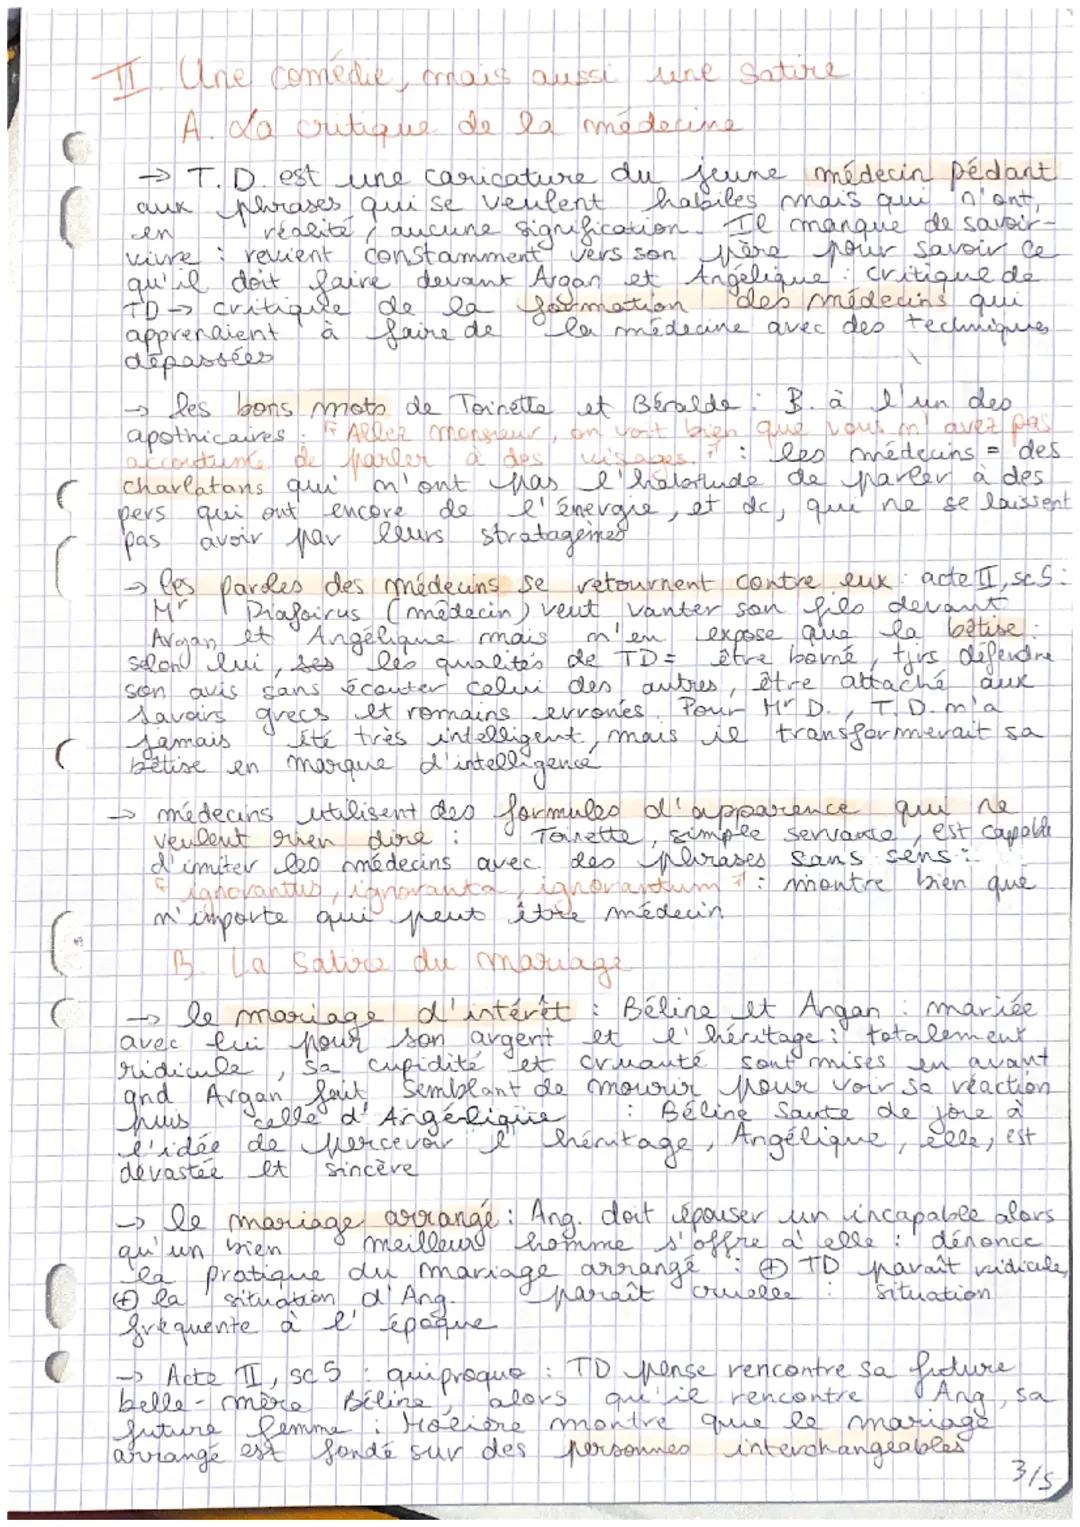 II. Une comédie, mais aussi une satire
A. La critique de la médecine
→ T.D. est une caricature du jeune médecin pédant
aux phrases qui se veulent habiles mais qui n'ont,
en réalité, aucune signification. Il manque de savoir-
vivre : revient constamment vers son père pour savoir ce
qu'il doit faire devant Argan et Angélique : critique de
TD → critique de la formation des médecins qui
apprenaient à faire de la médecine avec des techniques
dépassées
→ les bons mots de Toinette et Béralde : B. à l'un des
apothicaires : "Allez monsieur, on voit bien que vous n'avez pas
accoutumé de parler à des visages." : les médecins = des
charlatans qui n'ont pas l'habitude de parler à des
pers qui ont encore de l'énergie, et dc, qui ne se laissent
pas avoir par leurs stratagèmes
→ les paroles des médecins se retournent contre eux : acte II, sc 5 :
Mr Diafoirus (médecin) veut vanter son fils devant
Argan et Angélique mais n'en expose que la bêtise :
selon lui, ses les qualités de TD = être borné, tjrs défendre
son avis sans écouter celui des autres, être attaché aux
savoirs grecs et romains erronés. Pour Mr D., T.D. n'a
jamais été très intelligent, mais il transformerait sa
bêtise en marque d'intelligence
→ médecins utilisent des formules d'apparence qui ne
veulent rien dire : Toinette, simple servante, est capable
d'imiter les médecins avec des phrases sans sens :
"ignorantus, ignoranta, ignorantum" : montre bien que
n'importe qui peut être médecin
B. La satire du mariage
→ le mariage d'intérêt : Béline et Argan : mariée
avec lui pour son argent et l'héritage : totalement
ridicule, sa cupidité et cruauté sont mises en avant
qnd Argan fait semblant de mourir pour voir sa réaction
puis celle d'Angélique : Béline saute de joie à
l'idée de percevoir l'héritage, Angélique, elle, est
dévastée et sincère
→ le mariage arrangé : Ang. doit épouser un incapable alors
qu'un bien meilleur homme s'offre à elle : dénonce
la pratique du mariage arrangé : ⊕ TD paraît ridicule,
⊕ la situation d'Ang. paraît cruelle : situation
fréquente à l'époque
→ Acte II, sc 5 : quiproquo : TD pense rencontre sa future
belle-mère Béline, alors qu'il rencontre Ang, sa
future femme : Molière montre que le mariage
arrangé est fondé sur des personnes interchangeables
3/5